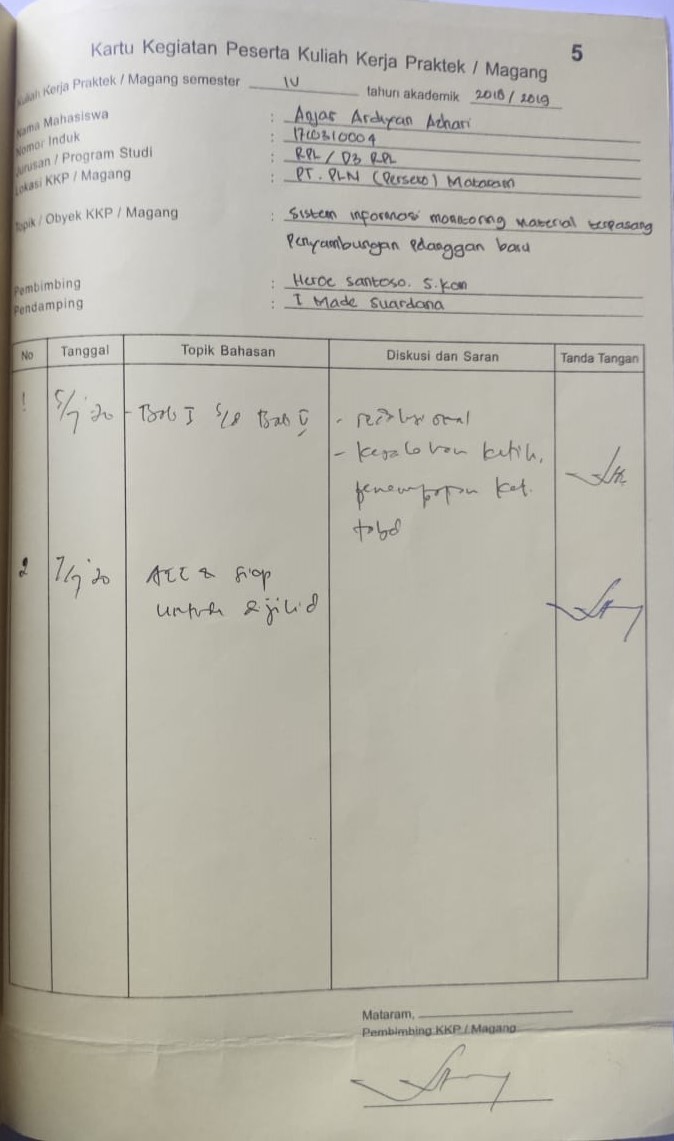 5
Kartu Kegiatan Peserta Kuliah Kerja Praktek / Magang
Kuliah Kerja Praktek / Magang semester IV tahun akademik 2018 / 2019
Nama Mahasiswa : Anjar Ardiyan Azhari
Nomor Induk : 1710310004
Jurusan / Program Studi : RPL / D3 RPL
Lokasi KKP / Magang : PT. PLN (Persero) Mataram
Topik / Obyek KKP / Magang : Sistem informasi monitoring material terpasang
Penyambungan pelanggan baru
Pembimbing : Heroe Santoso. S.Kom
Pendamping : I Made Suardana
No Tanggal Topik Bahasan Diskusi dan Saran Tanda Tangan
1 5/7 '20 - Bab I s/d Bab V -
- kesalahan ketik,
penempatan ket.
tabel
2 7/7 '20 ACC & siap
untuk dijilid
Mataram,
Pembimbing KKP / Magang